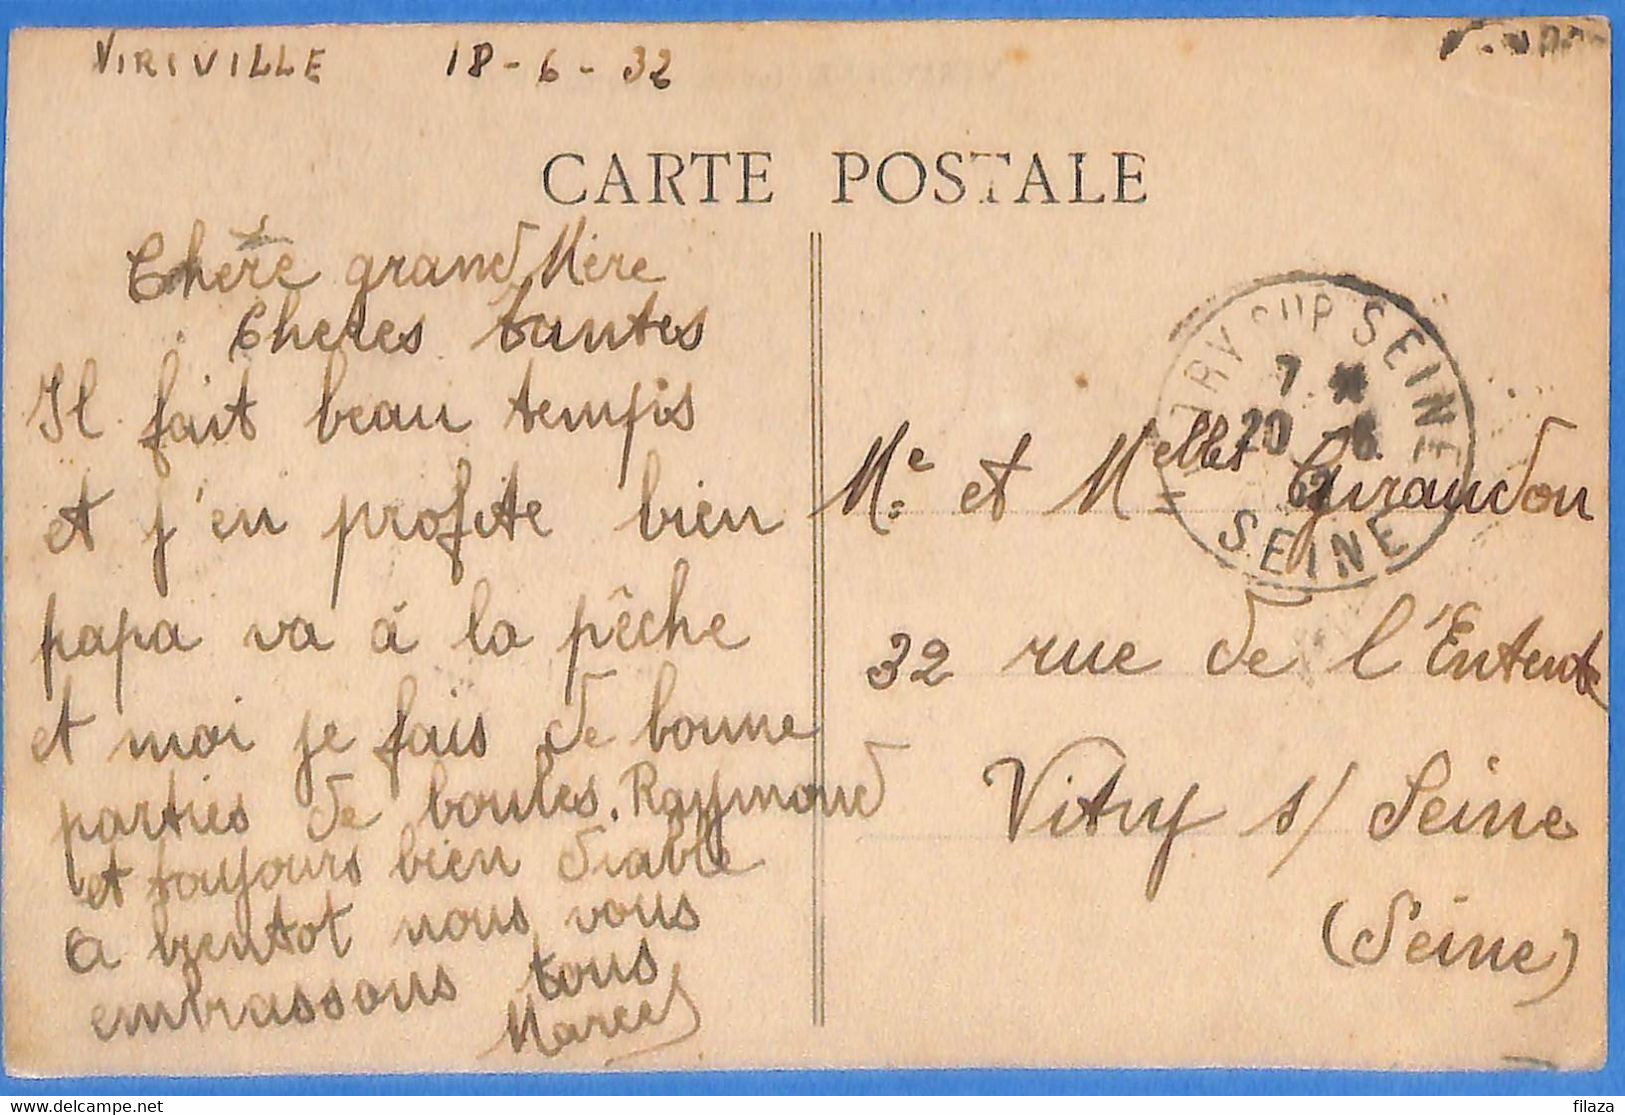 VIRIVILLE 18-6-32
CARTE POSTALE
Chère grand Mère
Cheres tantes
Il fait beau temps
et j'en profite bien
papa va à la pêche
et moi je fais de bonne
parties de boules. Raymond
et toujours bien diable
a bientot nous vous
embrassons tous
Marcel
VITRY SUR SEINE
7
20 -6
32
SEINE
Me et Melles Girandon
32 rue de l'Entente
Vitry s/ Seine
(Seine)
delcampe.net
filaza